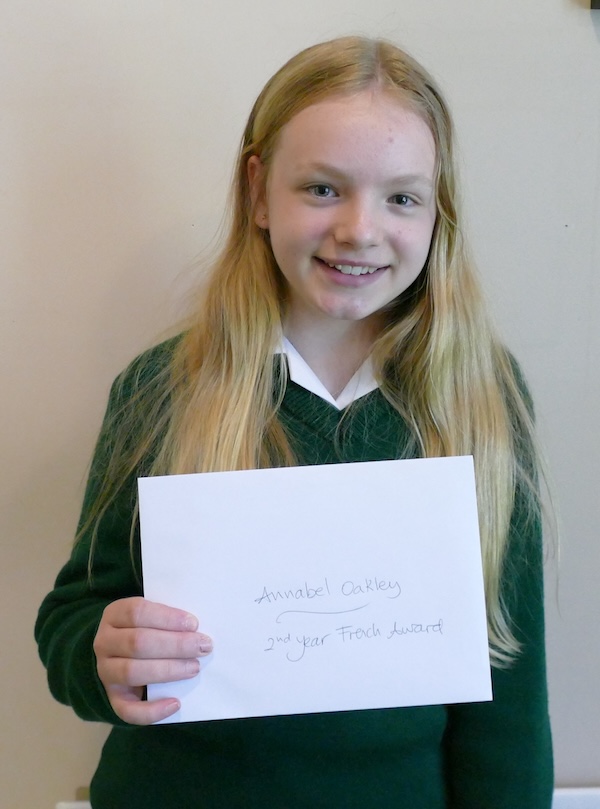 Annabel Oakley
2nd year French Award